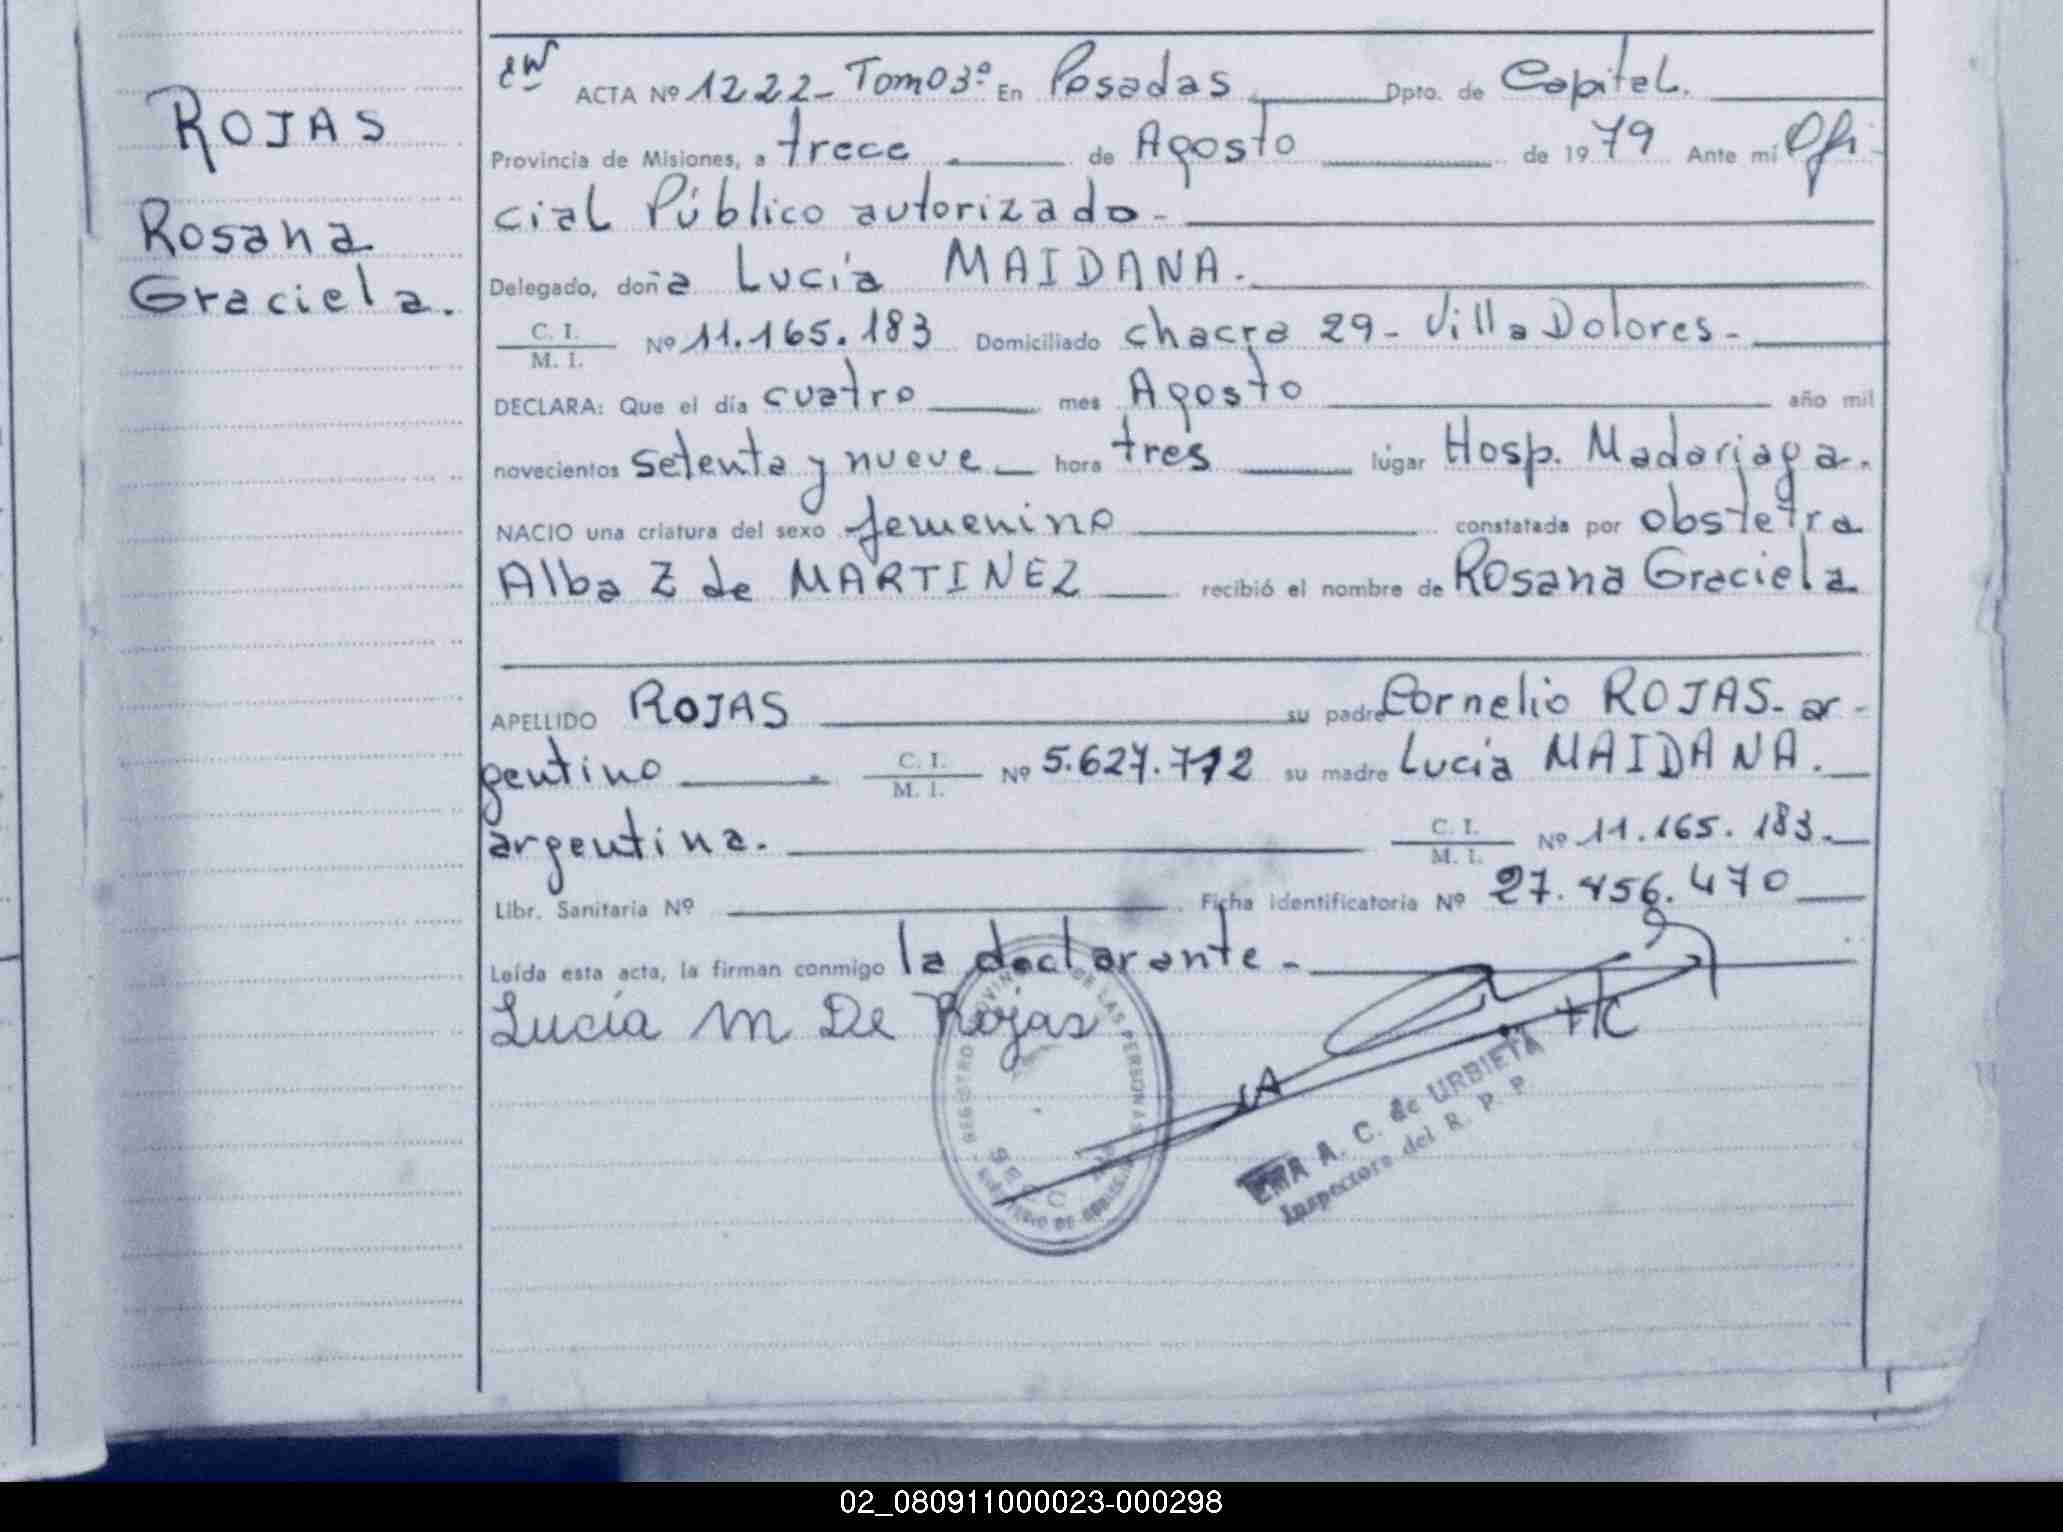 ROJAS
Rosana
Graciela.
ACTA Nº 1222- Tomo 3º En Posadas Dpto. de Capital.
Provincia de Misiones, a trece de Agosto de 1979 Ante mí Ofi-
cial Público autorizado-
Delegado, doña Lucía MAIDANA.
C. I.
M. I.
Nº 11.165.183 Domiciliado chacra 29- Villa Dolores-
DECLARA: Que el día cuatro mes Agosto año mil
novecientos setenta y nueve hora tres lúgar Hosp. Madariaga.
NACIO una criatura del sexo femenino constatada por obstetra
Alba Z de MARTINEZ recibió el nombre de Rosana Graciela
APELLIDO ROJAS su padre Cornelio ROJAS- ar-
gentino C. I. M. I. Nº 5.627.712 su madre Lucía MAIDANA.
argentina. C. I. M. I. Nº 11.165.183.
Libr. Sanitaria Nº Ficha Identificatoria Nº 27.456.470
Leída esta acta, la firman conmigo la declarante-
Lucía M De Rojas
REGISTRO PROVINCIAL DE LAS PERSONAS
A. C. de URBIETA
Inspectora del R. P. P.
02_080911000023-000298